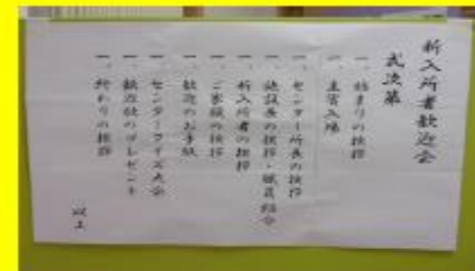 新入所者歓迎会
式次第
一、始まりの挨拶
一、主賓入場
一、センター所長の挨拶
一、施設長の挨拶・職員紹介
一、新入所者の挨拶
一、ご家族の挨拶
一、歓迎のお手紙
一、センタークイズ大会
一、歓迎のプレゼント
一、終わりの挨拶
以上